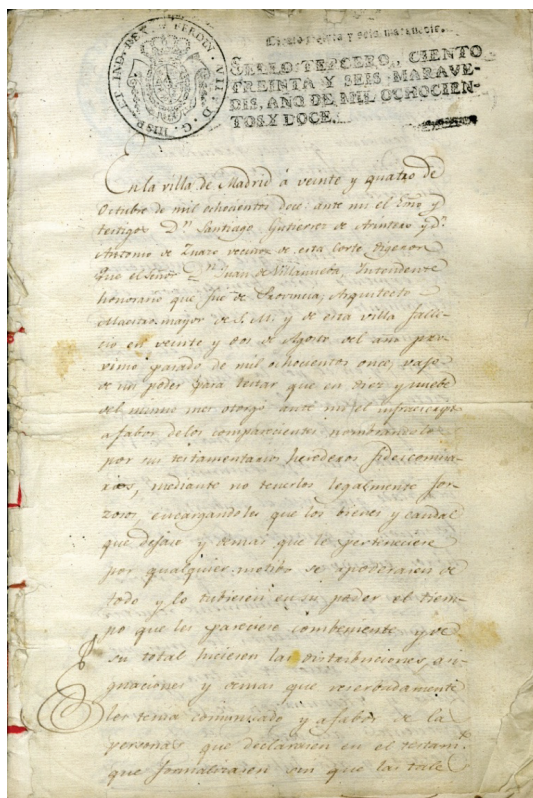 FERDIN · VII · D · G · HISP · ET IND · REX
Ciento treinta y seis maravedis.
SELLO TERCERO, CIENTO
TREINTA Y SEIS MARAVE-
DIS, AÑO DE MIL OCHOCIEN-
TOS Y DOCE.
En la villa de Madrid á veinte y quatro de
Octubre de mil ochocientos doce ante mi el Ssno y
testigos Dn Santiago Gutierrez de Arintero y Dn
Antonio de Inazo vecinos de esta Corte Digeron
Que el Señor Dn Juan de Villanueba, Intendente
honorario que fue de Provincia, Arquitecto
Maestro mayor de S. M. y de esta villa falle-
cio en veinte y dos de Agosto del año pro-
ximo pasado de mil ochocientos once, vajo
de un poder para testar que en diez y nuebe
del mismo mes otorgó ante mi el infraescripto
a fabor de los comparecientes nombrandolos
por sus testamentarios herederos fideicomisa-
rios, mediante no tenerlos legalmente for-
zosos, encargandoles que los bienes y caudal
que dejase y demas que le perteneciese
por qualquier motibo se apoderasen de
todo y lo tubiesen en su poder el tiem-
po que les pareciese combeniente y de
su total hiciesen las distribuciones, a-
gnaciones y demas que reserbadamente
les tenia comunicado y a fabor de la
personas que declarasen en el testamto
que formalizasen sin que las tale